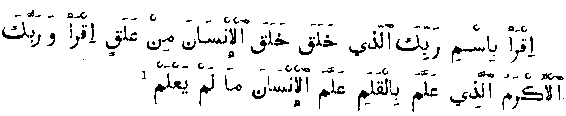 اِقْرَأْ بِاسْمِ رَبِّكَ الَّذي خَلَق خَلَقَ الْإِنْسَانَ مِنْ عَلَقٍ اِقْرَأْ وَ رَبُّكَ
الْأَكْرَمُ الَّذِي عَلَّمَ بِالْقَلَمِ عَلَّمَ الْإِنْسَانَ مَا لَمْ يَعْلَمْ 1